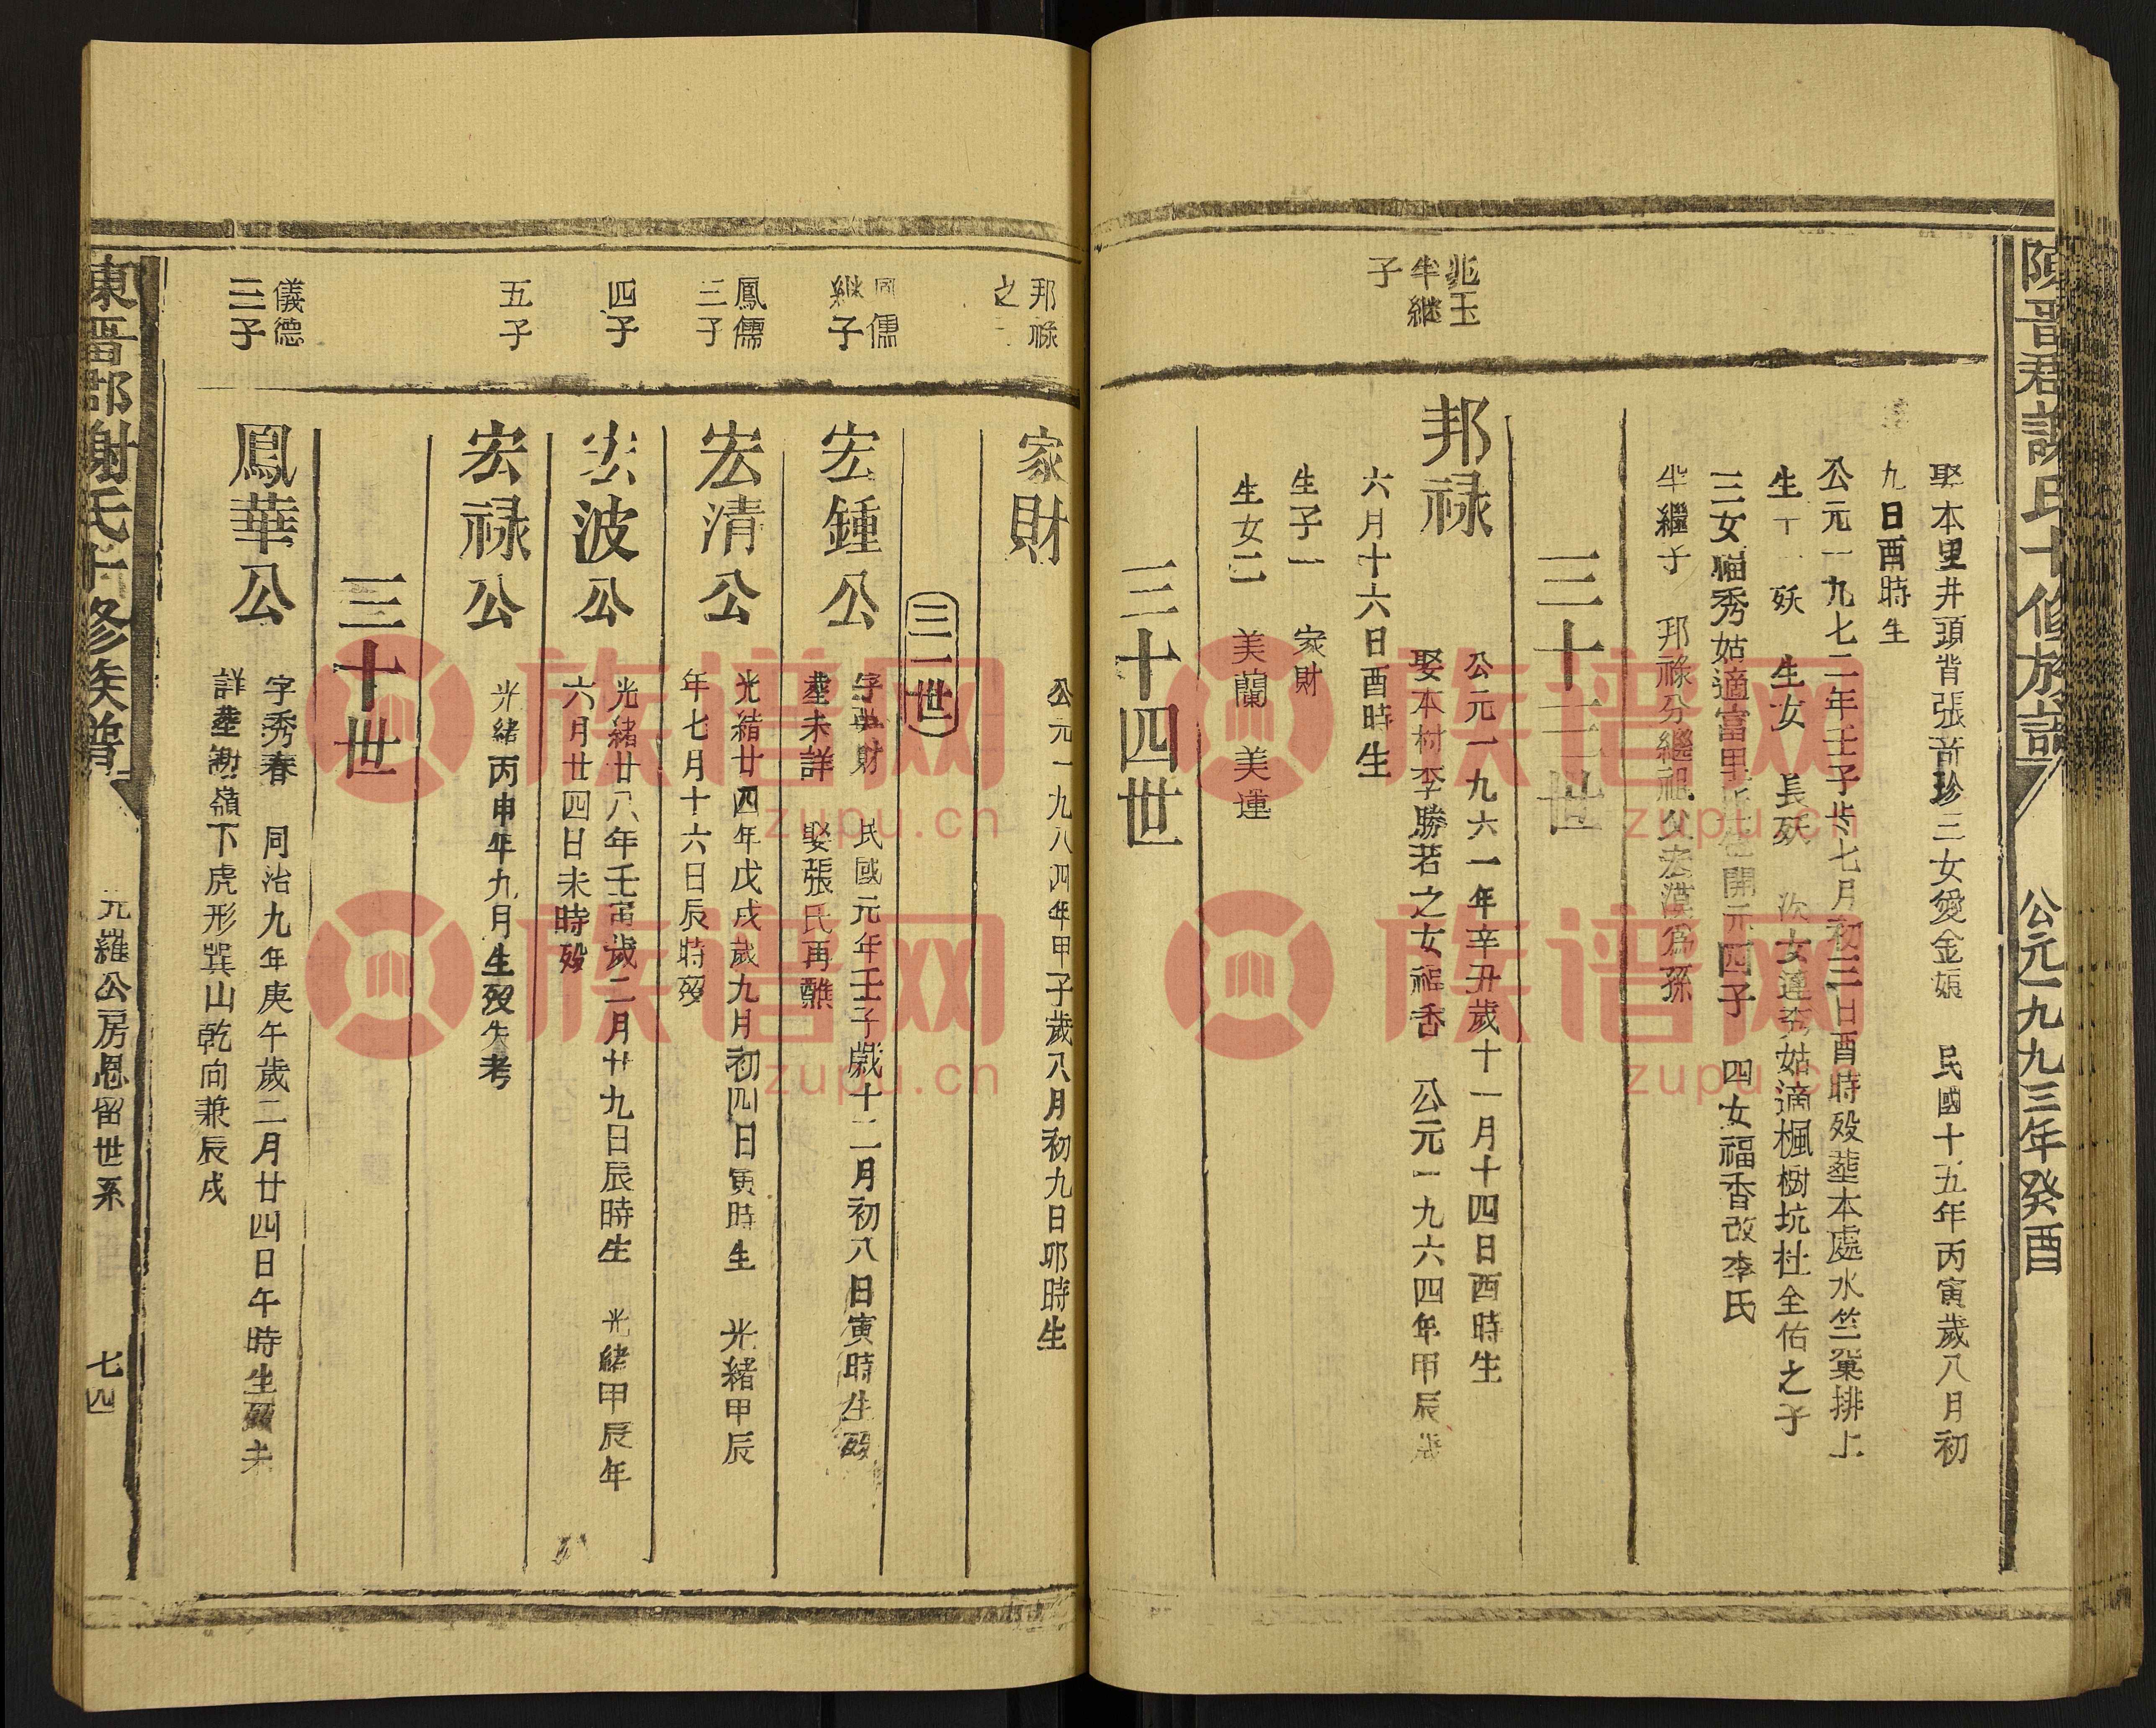 公元一九九三年癸酉
娶本里井頭背張新珍三女愛金娘 民國十五年丙寅歲八月初
九日酉時生
公元一九七二年壬子歲七月初三日酉時歿葬本處水竺窠排上
生 妖 生女 長妖 次女蓮秀姑適楓樹坑杜全佑之子
三女福秀姑適富里 開元四子 四女福香改李氏
半繼子 邦祿分繼祖父宏漢為孫
三十三世
兆玉
半繼
子
邦祿
公元一九六一年辛丑歲十一月十四日酉時生
娶本村李勝若之女福香 公元一九六四年甲辰歲
六月十六日酉時生
生子一 家財
生女二 美蘭 美運
三十四世
邦祿
之子
家財
公元一九八四年甲子歲八月初九日卯時生
三一世
鳳儒
繼子
宏鍾公
字典財 民國元年壬子歲十二月初八日寅時生歿
塟未詳 娶張氏再醮
鳳儒
三子
宏清公
光緒廿四年戊戌歲九月初四日寅時生 光緒甲辰
年七月十六日辰時歿
四子
宏波公
光緒廿八年壬寅歲二月廿九日辰時生 光緒甲辰年
六月廿四日未時歿
五子
宏祿公
光緒丙申年九月生歿失考
三十世
儀德
三子
鳳華公
字秀春 同治九年庚午歲二月廿四日午時生歿未
詳塟謝嶺下虎形巽山乾向兼辰戌
東晉郡謝氏十修族譜
元羅公房恩留世系
七四
族谱网
zupu.cn
族谱网
zupu.cn
族谱网
zupu.cn
族谱网
zupu.cn